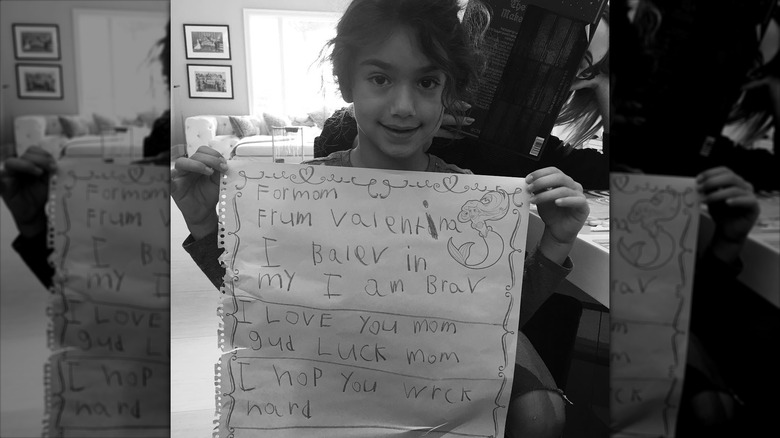 Formom
Frum Valentina
I Balev in
my I am Brav
I LOVE You mom
gud LUCK mom
I hop You wrck
hard